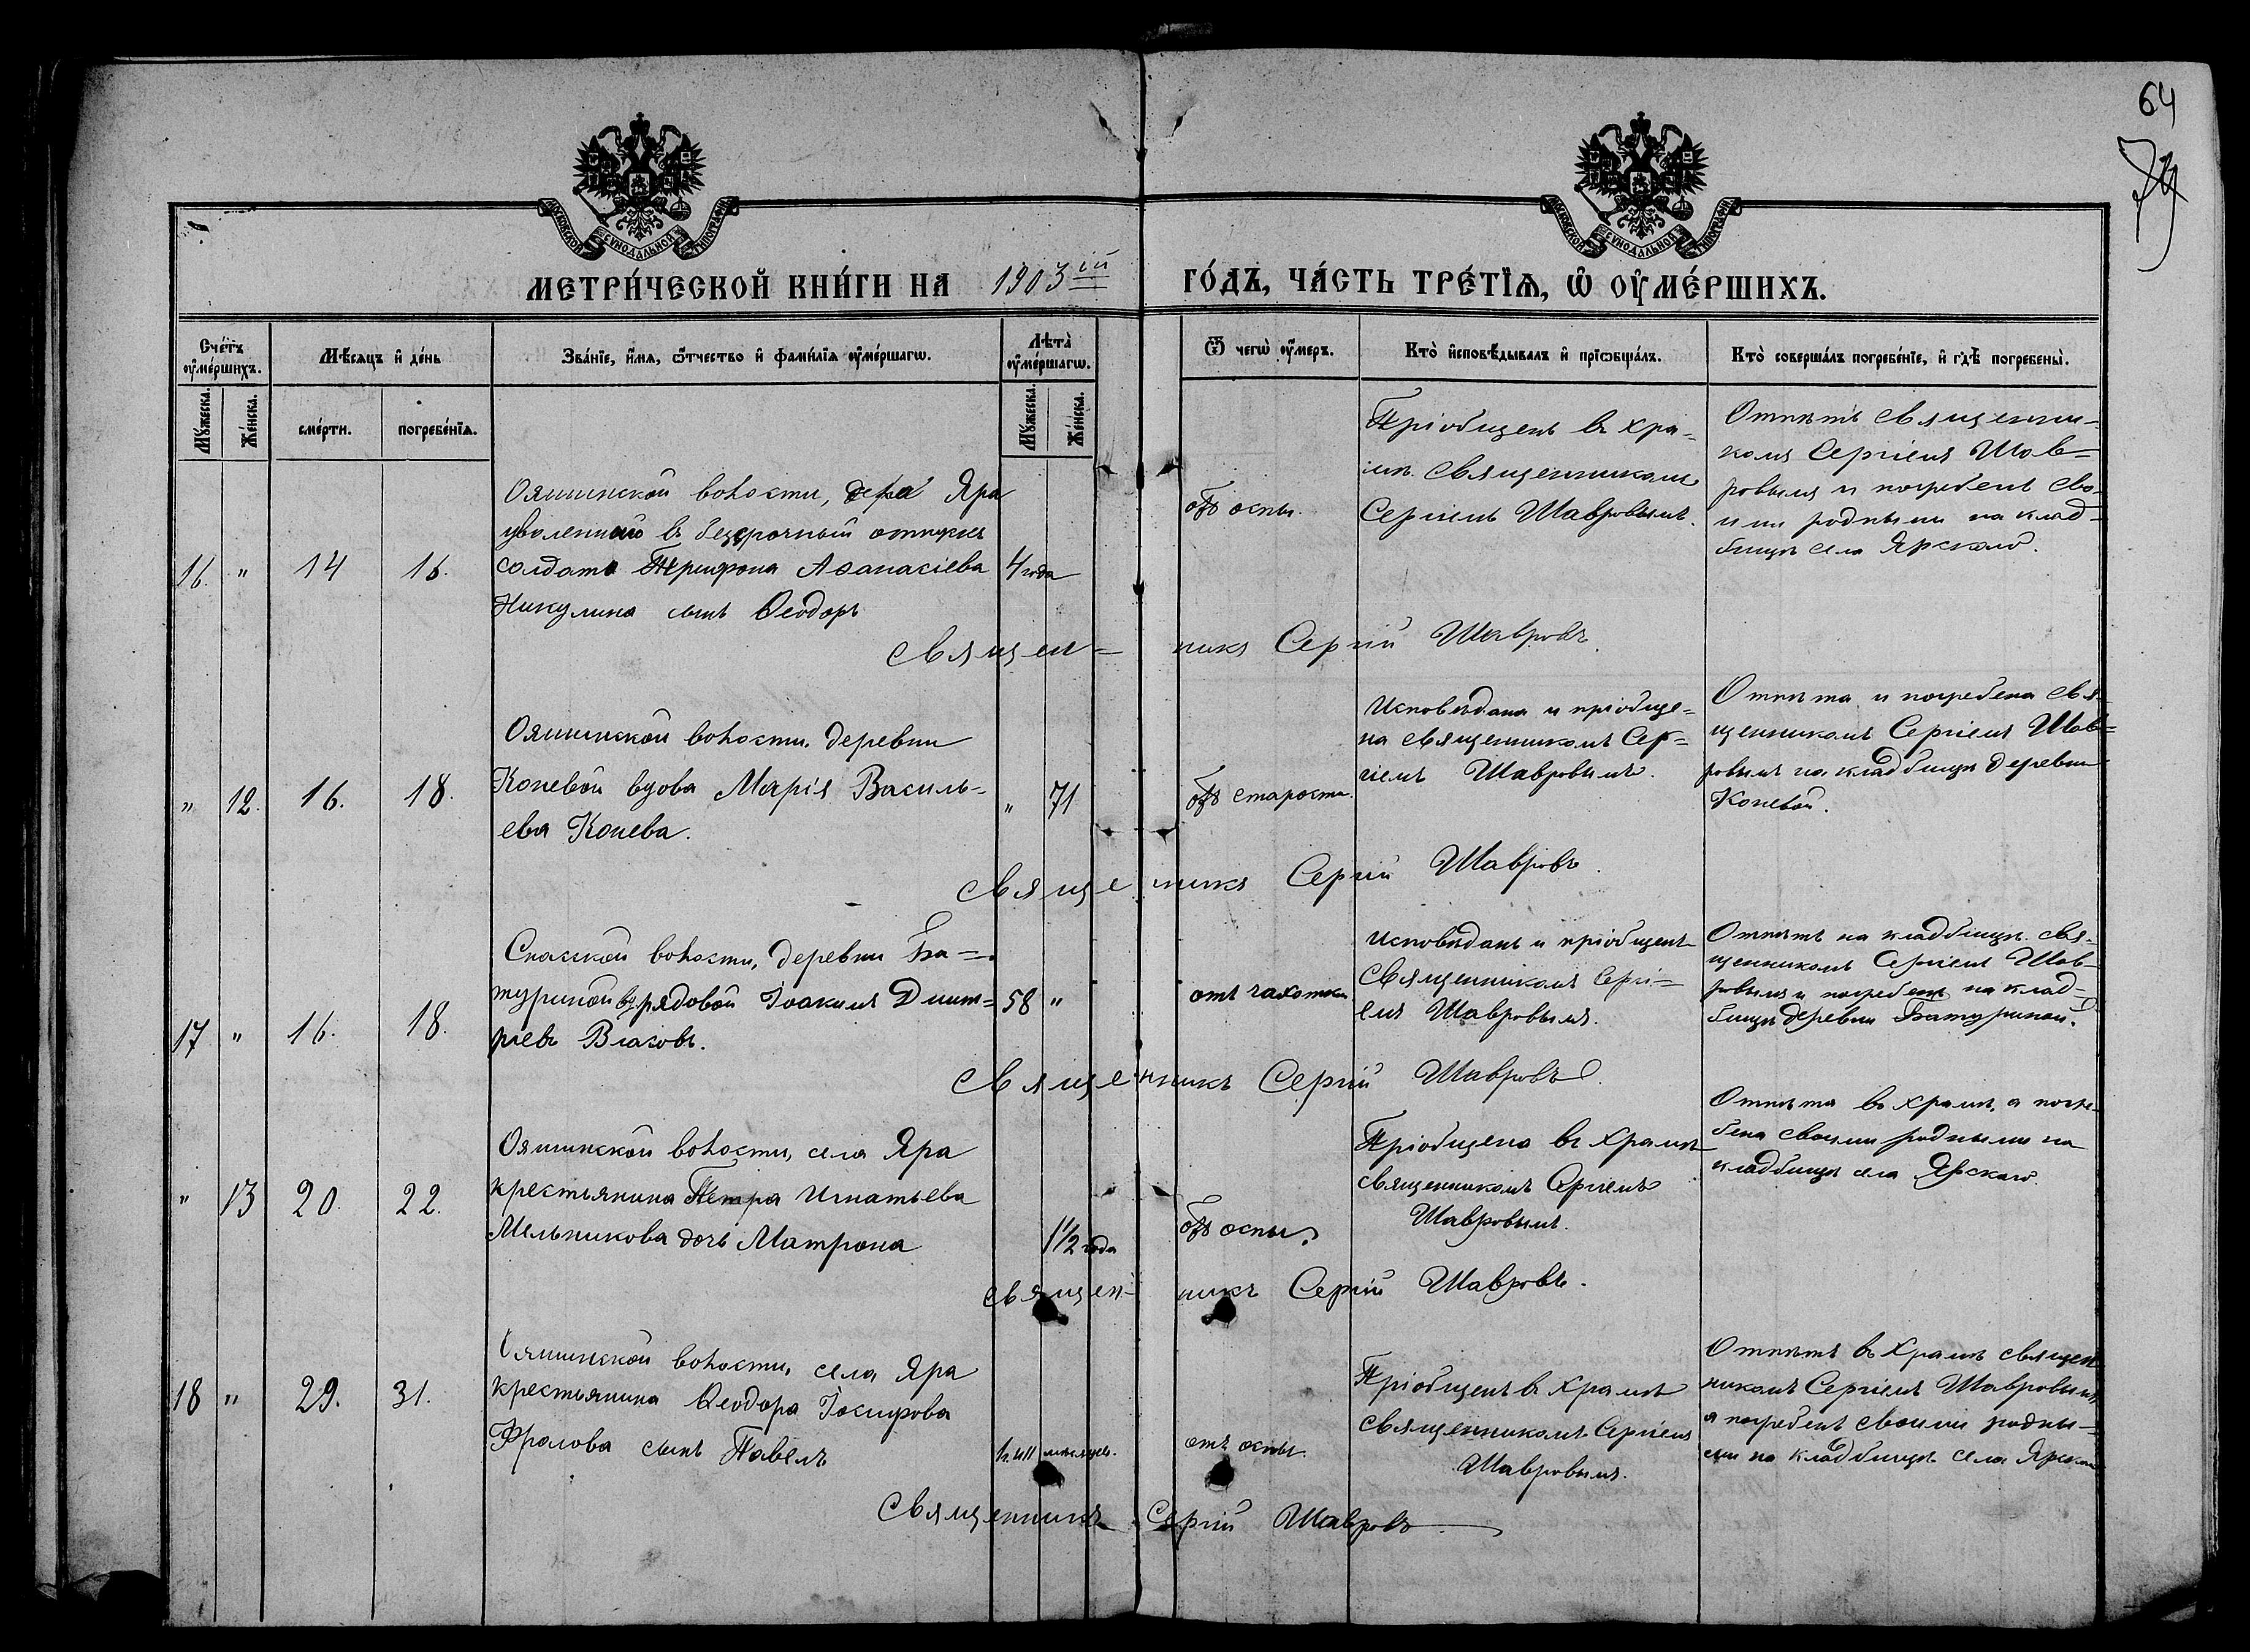 64
79
МОСКОВСКОЙ СѴНОДАЛЬНОЙ ТИПОГРАФІИ
МОСКОВСКОЙ СѴНОДАЛЬНОЙ ТИПОГРАФІИ
МЕТРИ́ЧЕСКОЙ КНИ́ГИ НА 1903 ій ГО́ДЪ, ЧА́СТЬ ТРЕ́ТІѦ, Ѡ҆ ОУ҆МЕ́РШИХЪ.
Сче́тъ оу҆ме́ршихъ.
Мѣ́сяцъ и҆ де́нь
Зва́нїе, и҆́мя, ѻ҆́тчество и҆ фами́лїя оу҆ме́ршагѡ.
Лѣ́та оу҆ме́ршагѡ.
Ѿ чегѡ̀ оу҆́меръ.
Кто̀ и҆сповѣ́дывалъ и҆ прїѡбща́лъ.
Кто̀ соверша́лъ погребе́нїе, и҆ гдѣ̀ погребены̀.
Мꙋ́жеска.
Же́нска.
сме́рти.
погребе́нїя.
Мꙋ́жеска.
Же́нска.
16. " 14 16.
Ояшинской волости, села Яра
уволеннаго въ безсрочный отпускъ
солдата Трифона Аѳанасіева
Никулина сынъ Ѳеодоръ
4 года
отъ оспы.
Пріобщенъ въ хра-
мѣ священникомъ
Сергіемъ Шавровымъ.
Отпѣтъ священни-
комъ Сергіемъ Шав-
ровымъ и погребенъ сво-
ими родными на клад-
бищѣ села Ярскаго.
Священ- никъ Сергій Шавровъ.
" 12. 16. 18.
Ояшинской волости, деревни
Коневой вдова Марія Василь-
ева Конева.
" 71
отъ старости.
Исповѣдана и пріобще-
на священникомъ Сер-
гіемъ Шавровымъ.
Отпѣта и погребена свя-
щенникомъ Сергіемъ Шав-
ровымъ на кладбищѣ деревни
Коневой.
Священникъ Сергій Шавровъ.
17 " 16. 18.
Спасской волости, деревни Ба-
туриной рядовой Іоакимъ Димит-
ріевъ
58 "
отъ чахотки
Исповѣданъ и пріобщенъ
священникомъ Сергі-
емъ Шавровымъ.
Отпѣтъ на кладбищѣ свя-
щенникомъ Сергіемъ Шав-
ровымъ и погребенъ на клад-
бищѣ деревни Батуриной.
Священникъ Сергій Шавровъ.
" 13 20. 22.
Ояшинской волости, села Яра
крестьянина Петра Игнатьева
Мельникова дочь Матрона
1 1/2 года
отъ оспы.
Пріобщена въ храмѣ
священникомъ Сергіемъ
Шавровымъ.
Отпѣта въ храмѣ, а погре-
бена своими родными на
кладбищѣ села Ярскаго.
Священ- никъ Сергій Шавровъ.
18 " 29. 31.
Ояшинской волости, села Яра
крестьянина Ѳеодора Іосифова
Фролова сынъ Павелъ
мѣсяцев.
отъ оспы.
Пріобщенъ въ храмѣ
священникомъ Сергіемъ
Шавровымъ.
Отпѣтъ въ храмѣ священ
никомъ Сергіемъ Шавровымъ,
а погребенъ своими родны-
ми на кладбищѣ села Ярскаго
Священникъ Сергій Шавровъ